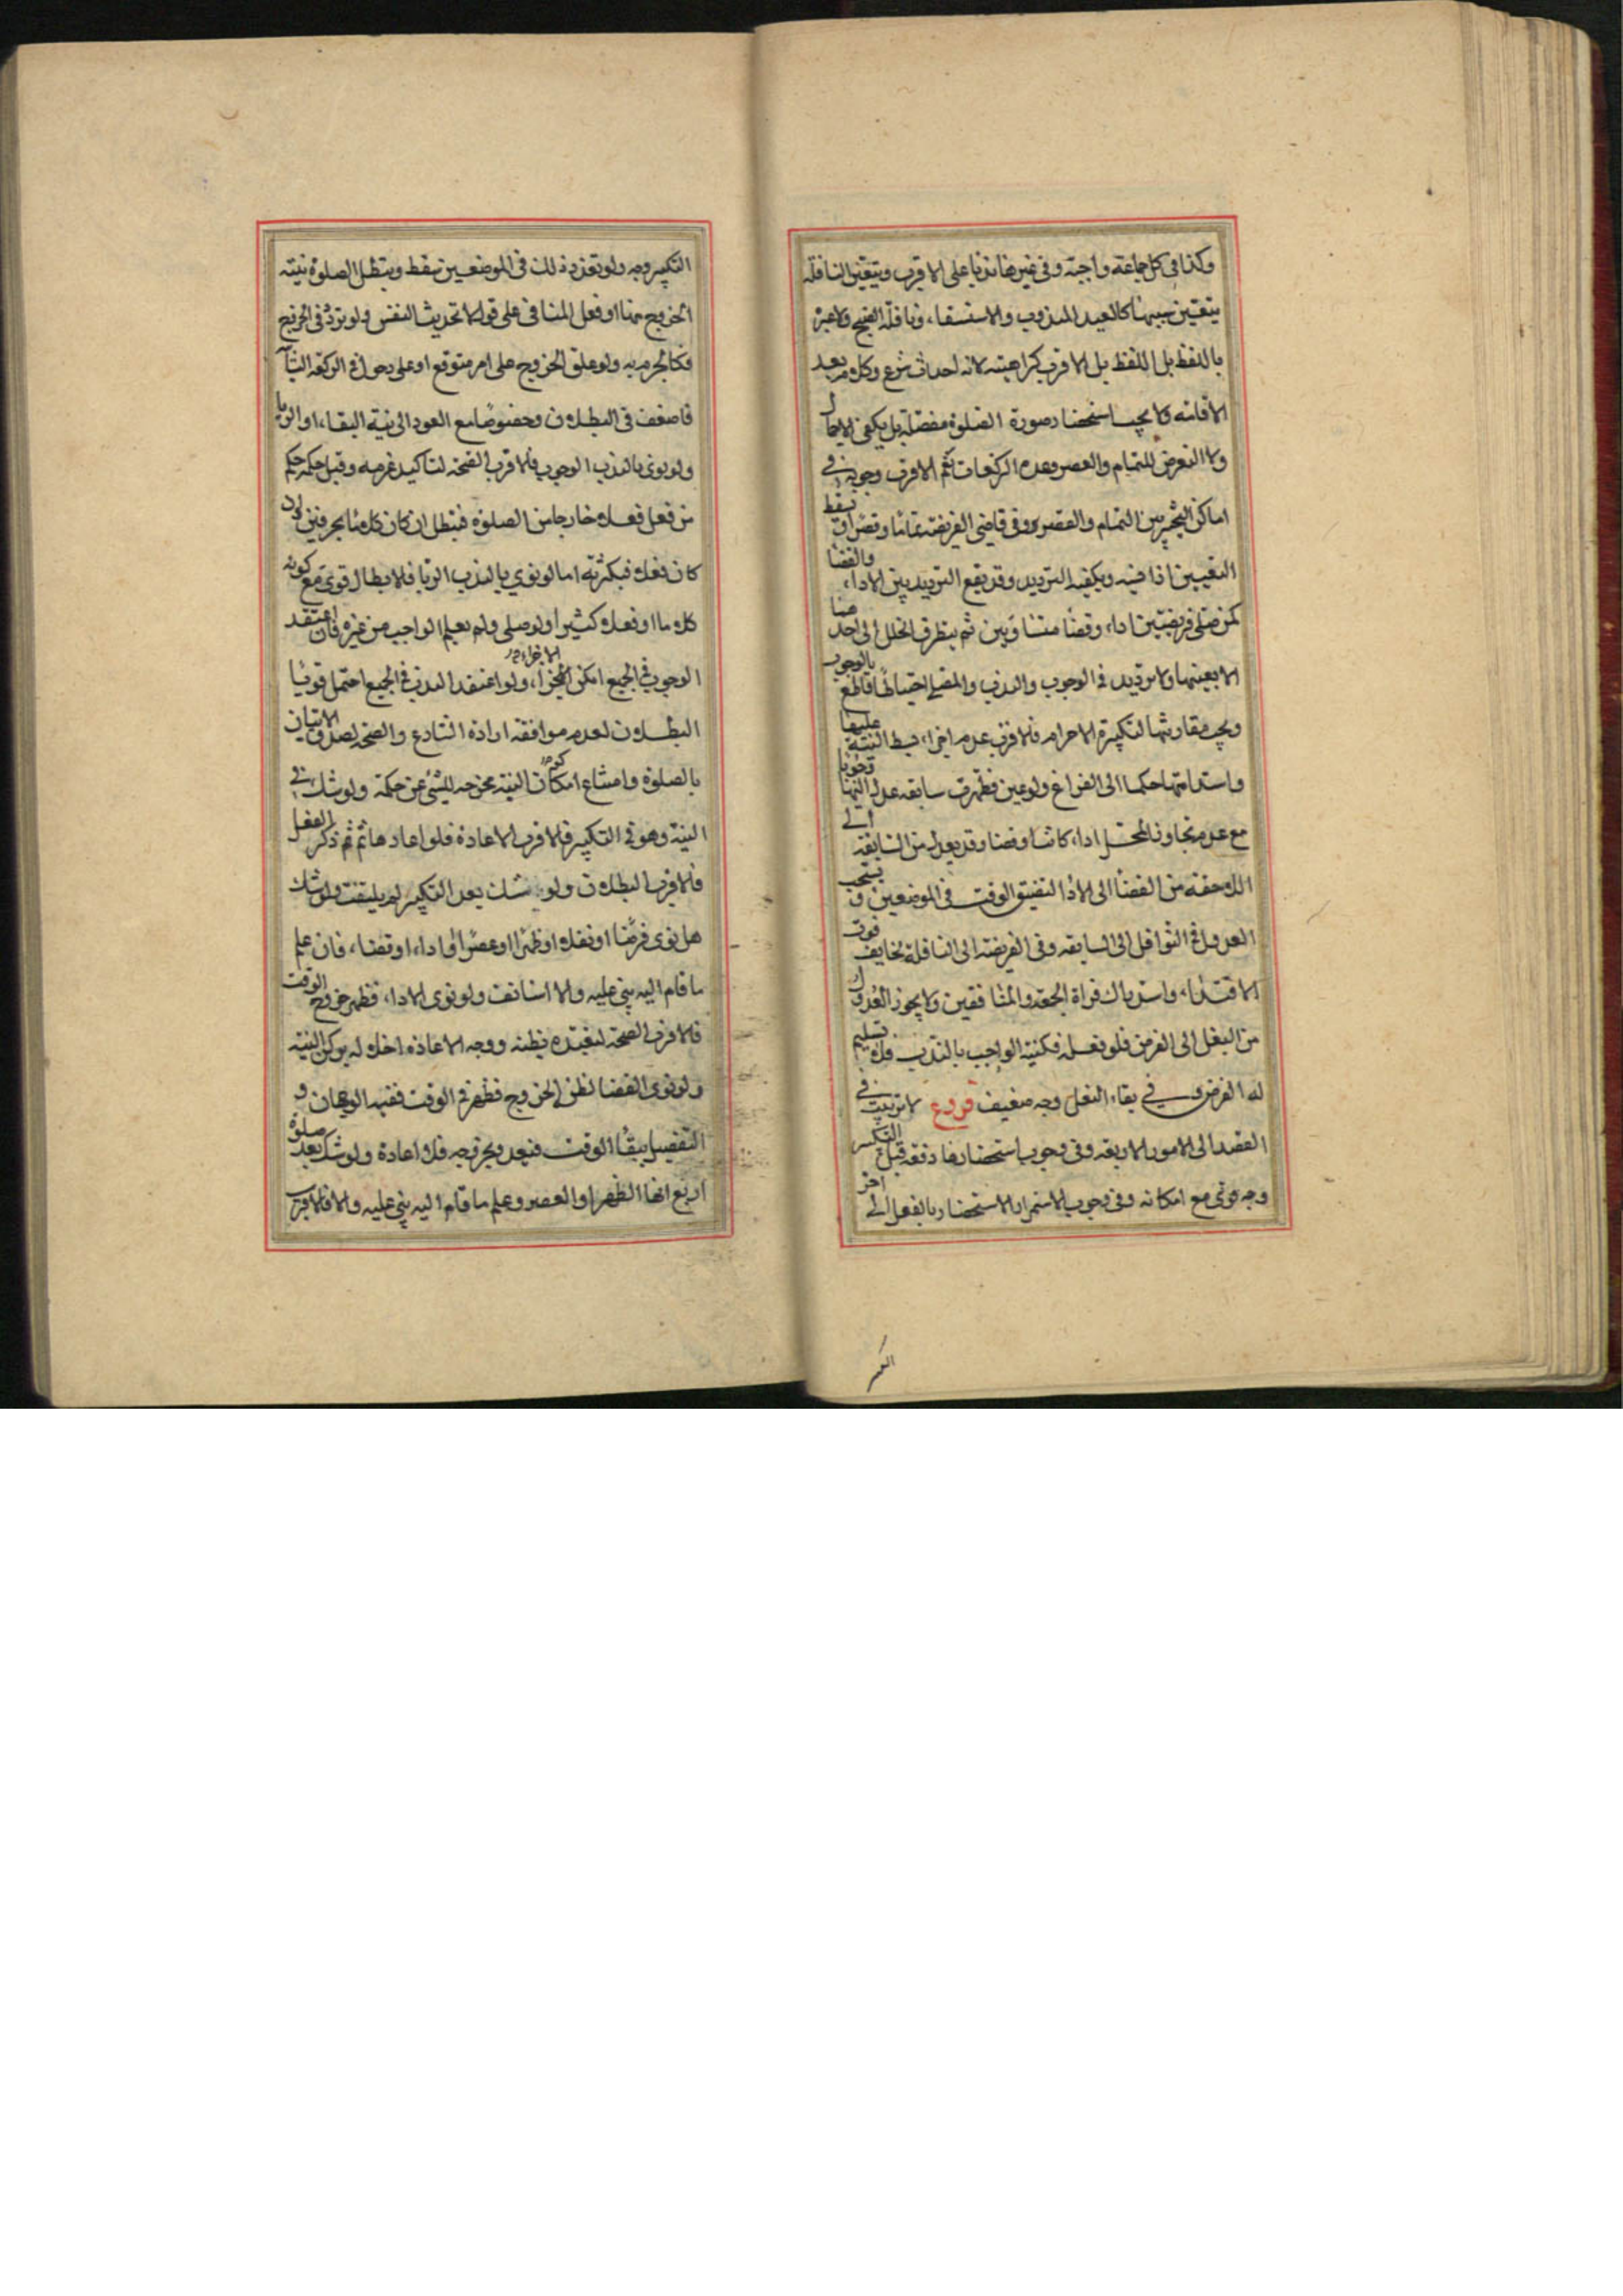 وكذا فى كل جماعة واجبة وفى غيرها ندبا على الاقرب ويتعين النافلة
بتعيين سببها كالعيد المندوب والاستسقاء، ونافلة الصبح ولا عبرة
باللفظ بل اللفظ بل الاقرب كراهيته لانه احداث شرع وكلام بعد
الاقامة ولا يجب استحضار صورة الصلوة مفصلة بل يكفى الاجمال
ولا التعرض للتمام والعصر وعدد الركعات نعم الاقرب وجوبه فى
اماكن التخيير بين التمام والقصر وفى قاضى الفريضة تماما وقصرا ويسقط
التعيين اذا نسيه ويكفيه الترديد وقد يقع الترديد بين الاداء، والقضا
كمن صلى فريضتين اداء، وقضا متساويين ثم يتطرق الخلل الى احد هنا
لا بعينها ولا ترديد فى الوجوب والندب والمصلى احتياطا قاطع بالوجوب
ويجب مقارنتها لتكبيرة الاحرام فالاقرب عدم اجزاء، بسط النية عليها
واستدامتها حكما الى الفراغ ولو عين فظهرت سابقه عدل اليها وجوبا
مع عدم تجاوز المحل اداء، كانتا وقضا وقد يعدل من السابقة الى
اللاحقة من القضا الى الادا لتضيق الوقت فى الموضعين و يستحب
العدول فى النوافل الى السابقه وفى الفريضة الى النافلة لخايف فوت
الاقتدا، واستدراك قراة الجمعة والمنافقين ولا يجوز العدول
من النفل الى الفرض فلو فعله فكنية الواجب بالندب فلا تسليم
له الفرض وفى بقاء، النفل وجه ضعيف فروع لا ترتيب فى
القصد الى الامور الاربعه وفى وجوب استحضارها دفعة قبل التكبير
وجه قوى مع امكانه وفى وجوب الاستمرار الاستحضار بالفعل الى اخر
التكبير
التكبير وجه ولو تعذر ذلك فى الموضعين سقط ويبطل الصلوة نية
الخروج منها او فعل المنافى على قول لا تحديث النفس ولو تردد فى الخروج
فكالجزم به ولو علق الخروج على امر متوقع او على دخول فى الركعة الثا
فاضعف فى البطلان وخصوصا مع العود الى نية البقاء، او الريا
ولو نوى بالندب الوجوب فالاقرب الصحة لتاكيد عزمه وقبل حكمه حكم
من فعل فعلا خارجا من الصلوة فتبطل ان كان كلاما بحرفين وان
كان فعلا فبكثرته اما لو نوى بالندب الريا فالابطال قوى مع كونه
كلاما او فعلا كثيرا ولو صلى ولم يعلم الواجب من غيره فان اعتقد
الوجوب فى الجميع امكن الاجزاء، ولو اعتقد الندب فى الجميع احتمل قويا
البطلان لعدم موافقة ارادة الشارع والصحة لصدق الاتيان
بالصلوة وامتناع امكان كون النية مخرجه للشئ عن حكمه ولو شك فى
النية وهو فى التكبير فالاقرب الاعادة فلو اعادها ثم ذكر الفعل
فالاقرب البطلان ولو شك بعد التكبير لم يلتفت ولو شك
هل نوى فرضا او نفلا او ظهرا او عصرا او اداء، او قضا، فان علم
ما قام اليه بنى عليه والا استانف ولو نوى الاداء، فظهر خروج الوقت
فالاقرب الصحة لتعبده بظنه ووجه الاعادة اخلاله بركن النية
ولو نوى القضا لظن الخروج فظهر فى الوقت ففيه الوجهان و
التفصيل ببقا الوقت فيعد وبخروجه فلا اعادة ولو شك بعد صلوة
اربع انها الظهر او العصر وعلم ما قام اليه بنى عليه والا فالاقرب